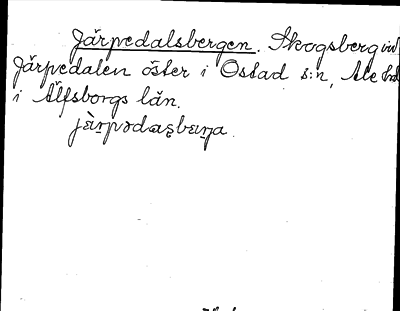 Järpedalsbergen. Skogsberg vid
Järpedalen öster i Ostad s:n, Ale hd
i Älfsborgs län.